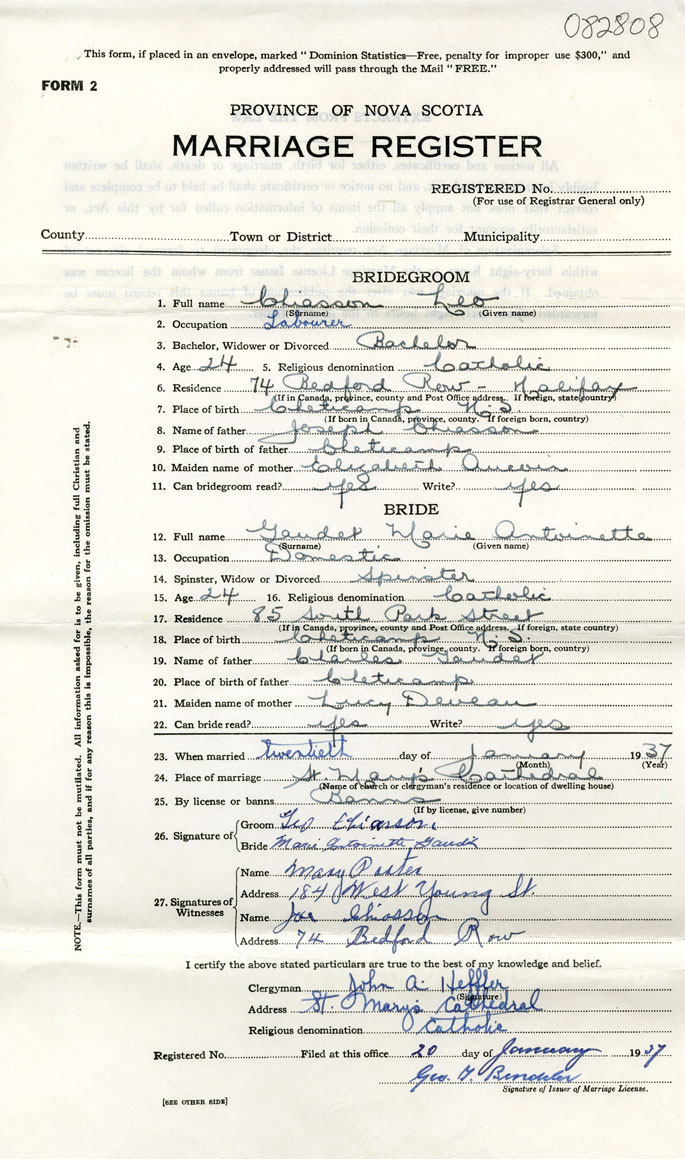 082808
This form, if placed in an envelope, marked "Dominion Statistics—Free, penalty for improper use $300," and
properly addressed will pass through the Mail "FREE."
FORM 2
PROVINCE OF NOVA SCOTIA
MARRIAGE REGISTER
REGISTERED No.
(For use of Registrar General only)
County Town or District Municipality
BRIDEGROOM
1. Full name Chiasson Leo
(Surname) (Given name)
2. Occupation Labourer
3. Bachelor, Widower or Divorced Bachelor
4. Age 24 5. Religious denomination Catholic
6. Residence 74 Bedford Row - Halifax
(If in Canada, province, county and Post Office address. If foreign, state country)
7. Place of birth Cheticamp N.S.
(If born in Canada, province, county. If foreign born, country)
8. Name of father Joseph Chiasson
9. Place of birth of father Cheticamp
10. Maiden name of mother Elizabeth Aucoin
11. Can bridegroom read? yes Write? yes
BRIDE
12. Full name Gaudet Marie Antoinette
(Surname) (Given name)
13. Occupation Domestic
14. Spinster, Widow or Divorced Spinster
15. Age 24 16. Religious denomination Catholic
17. Residence 85 South Park Street
(If in Canada, province, county and Post Office address. If foreign, state country)
18. Place of birth Cheticamp N.S.
(If born in Canada, province, county. If foreign born, country)
19. Name of father Charles Gaudet
20. Place of birth of father Cheticamp
21. Maiden name of mother Lucy Deveau
22. Can bride read? yes Write? yes
23. When married twentieth day of January 1937
(Month) (Year)
24. Place of marriage St. Mary's Cathedral
(Name of church or clergyman's residence or location of dwelling house)
25. By license or banns Banns
(If by license, give number)
26. Signature of
Groom Leo Chiasson
Bride Marie Antoinette
27. Signatures of Witnesses
Name Mary Porter
Address 184 West Young St.
Name Joe Chiasson
Address 74 Bedford Row
I certify the above stated particulars are true to the best of my knowledge and belief.
Clergyman John A. Heffler
(Signature)
Address St. Mary's Cathedral
Religious denomination Catholic
Registered No. Filed at this office 20 day of January 1937
Geo. T.
Signature of Issuer of Marriage License.
[SEE OTHER SIDE]
NOTE.—This form must not be mutilated. All information asked for is to be given, including full Christian and
surnames of all parties, and if for any reason this is impossible, the reason for the omission must be stated.